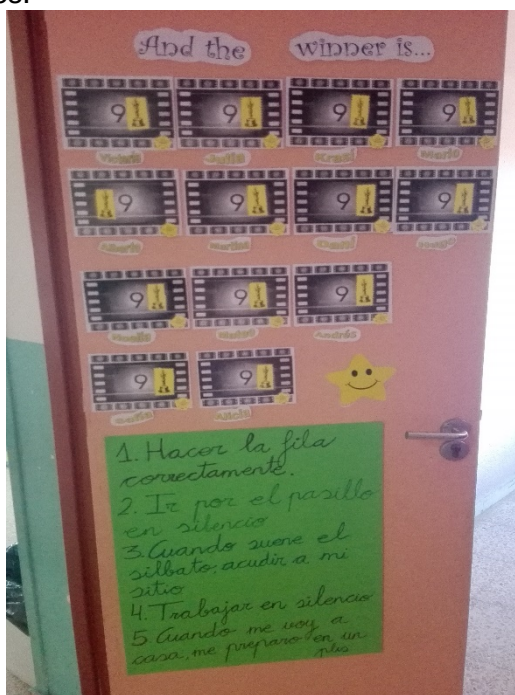 And the winner is...
9 9 9 9
Victoria Julia Krasi Mario
9 9 9 9
Alberto Martina Daniel
9 9 9
Noelia Andrés
9 9
Sofía Alicia
1. Hacer la fila
correctamente.
2. Ir por el pasillo
en silencio
3. Cuando suene el
silbato, acudir a mi
sitio
4. Trabajar en silencio
5. Cuando me voy a
casa, me preparo en un
plis